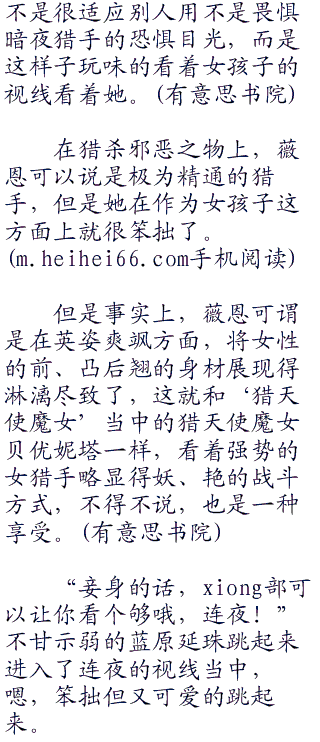 不是很适应别人用不是畏惧
暗夜猎手的恐惧目光，而是
这样子玩味的看着女孩子的
视线看着她。(有意思书院)
在猎杀邪恶之物上，薇
恩可以说是极为精通的猎
手，但是她在作为女孩子这
方面上就很笨拙了。
(m.heihei66.com手机阅读)
但是事实上，薇恩可谓
是在英姿爽飒方面，将女性
的前、凸后翘的身材展现得
淋漓尽致了，这就和‘猎天
使魔女’当中的猎天使魔女
贝优妮塔一样，看着强势的
女猎手略显得妖、艳的战斗
方式，不得不说，也是一种
享受。(有意思书院)
“妾身的话，xiong部可
以让你看个够哦，连夜！”
不甘示弱的蓝原延珠跳起来
进入了连夜的视线当中，
嗯，笨拙但又可爱的跳起
来。